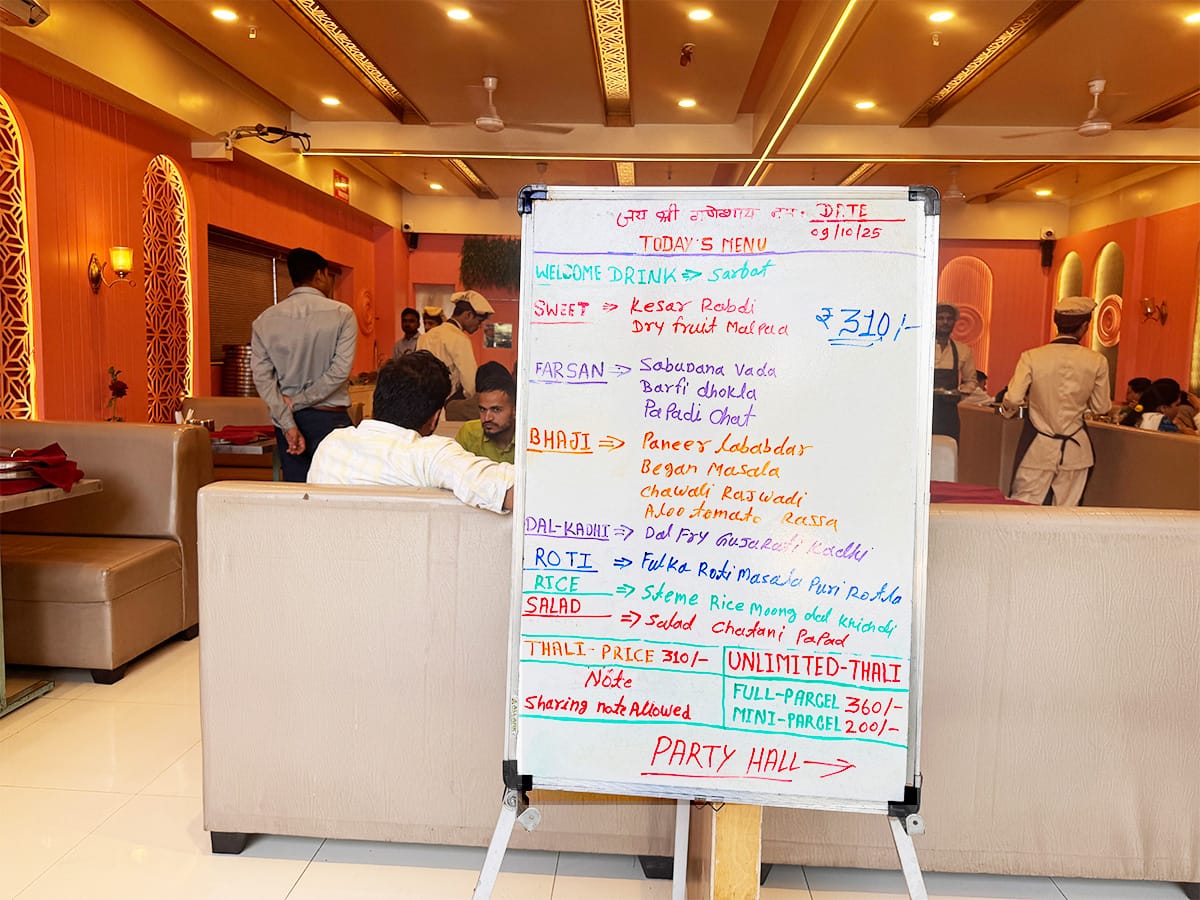 जय श्री गणेशाय नमः DATE
09/10/25
TODAY'S MENU
WELCOME DRINK ⇒ Sarbat
SWEET ⇒ Kesar Rabdi
Dry fruit Malpua
₹ 310/-
FARSAN ⇒ Sabudana Vada
Barfi dhokla
Papadi Chat
BHAJI ⇒ Paneer Lababdar
Began Masala
Chawali Rajwadi
Aloo tomato Rassa
DAL-KADHI ⇒ Dal Fry Gujarati Kadhi
ROTI ⇒ Fulka Roti Masala Puri Rotla
RICE ⇒ Steme Rice Moong dal Khichdi
SALAD ⇒ Salad Chatani Papad
THALI-PRICE 310/-
Note
Sharing note Allowed
UNLIMITED-THALI
FULL-PARCEL 360/-
MINI-PARCEL 200/-
PARTY HALL →